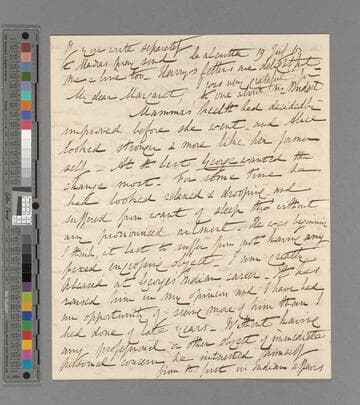 If you write separately
to Madras pray send Calcutta 19 July 63
me a line too Henry's letters are delightful.
I was very grateful for
My dear Margaret, the one about the Budget
Mamma's health had decidedly
improved before she went - and Alice
looked stronger & more like her former
self - At the last George wanted the
change most. For some time he
had looked relaxed & drooping and
suffered from want of sleep tho' without
any pronounced ailment - He was beginning
I think, at last to suffer from not having any
fixed engrossing object. I am greatly
pleased at George's Indian career. It has
raised him in my opinion and I have had
an opportunity of seeing more of him than I
had done of late years - Without having
any professional or other object of immediate
personal concern he interested himself
from the first in Indian affairs